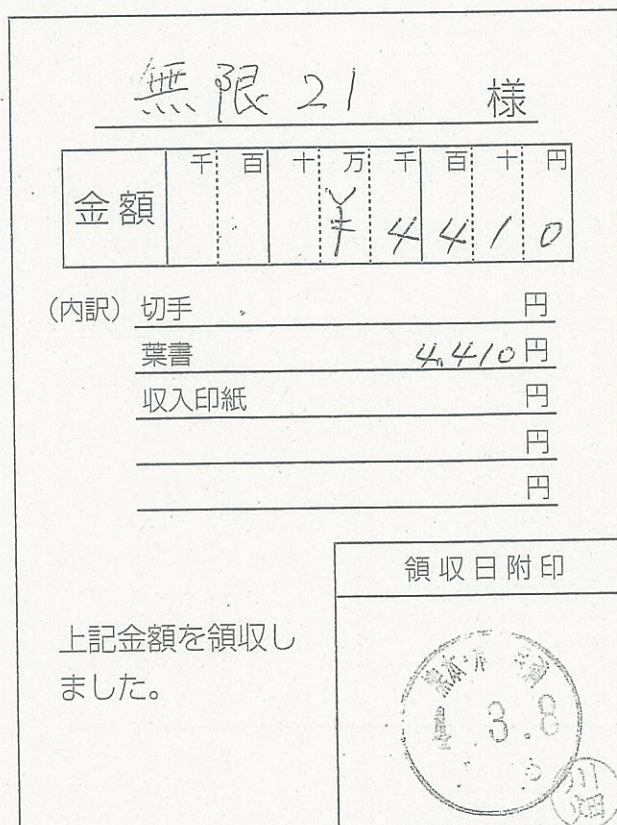 無限21 様
金額 千 百 十 万 千 百 十 円
¥ 4 4 1 0
(内訳) 切手 円
葉書 4,410円
収入印紙 円
円
円
領収日附印
上記金額を領収し
ました。
3.8
川畑